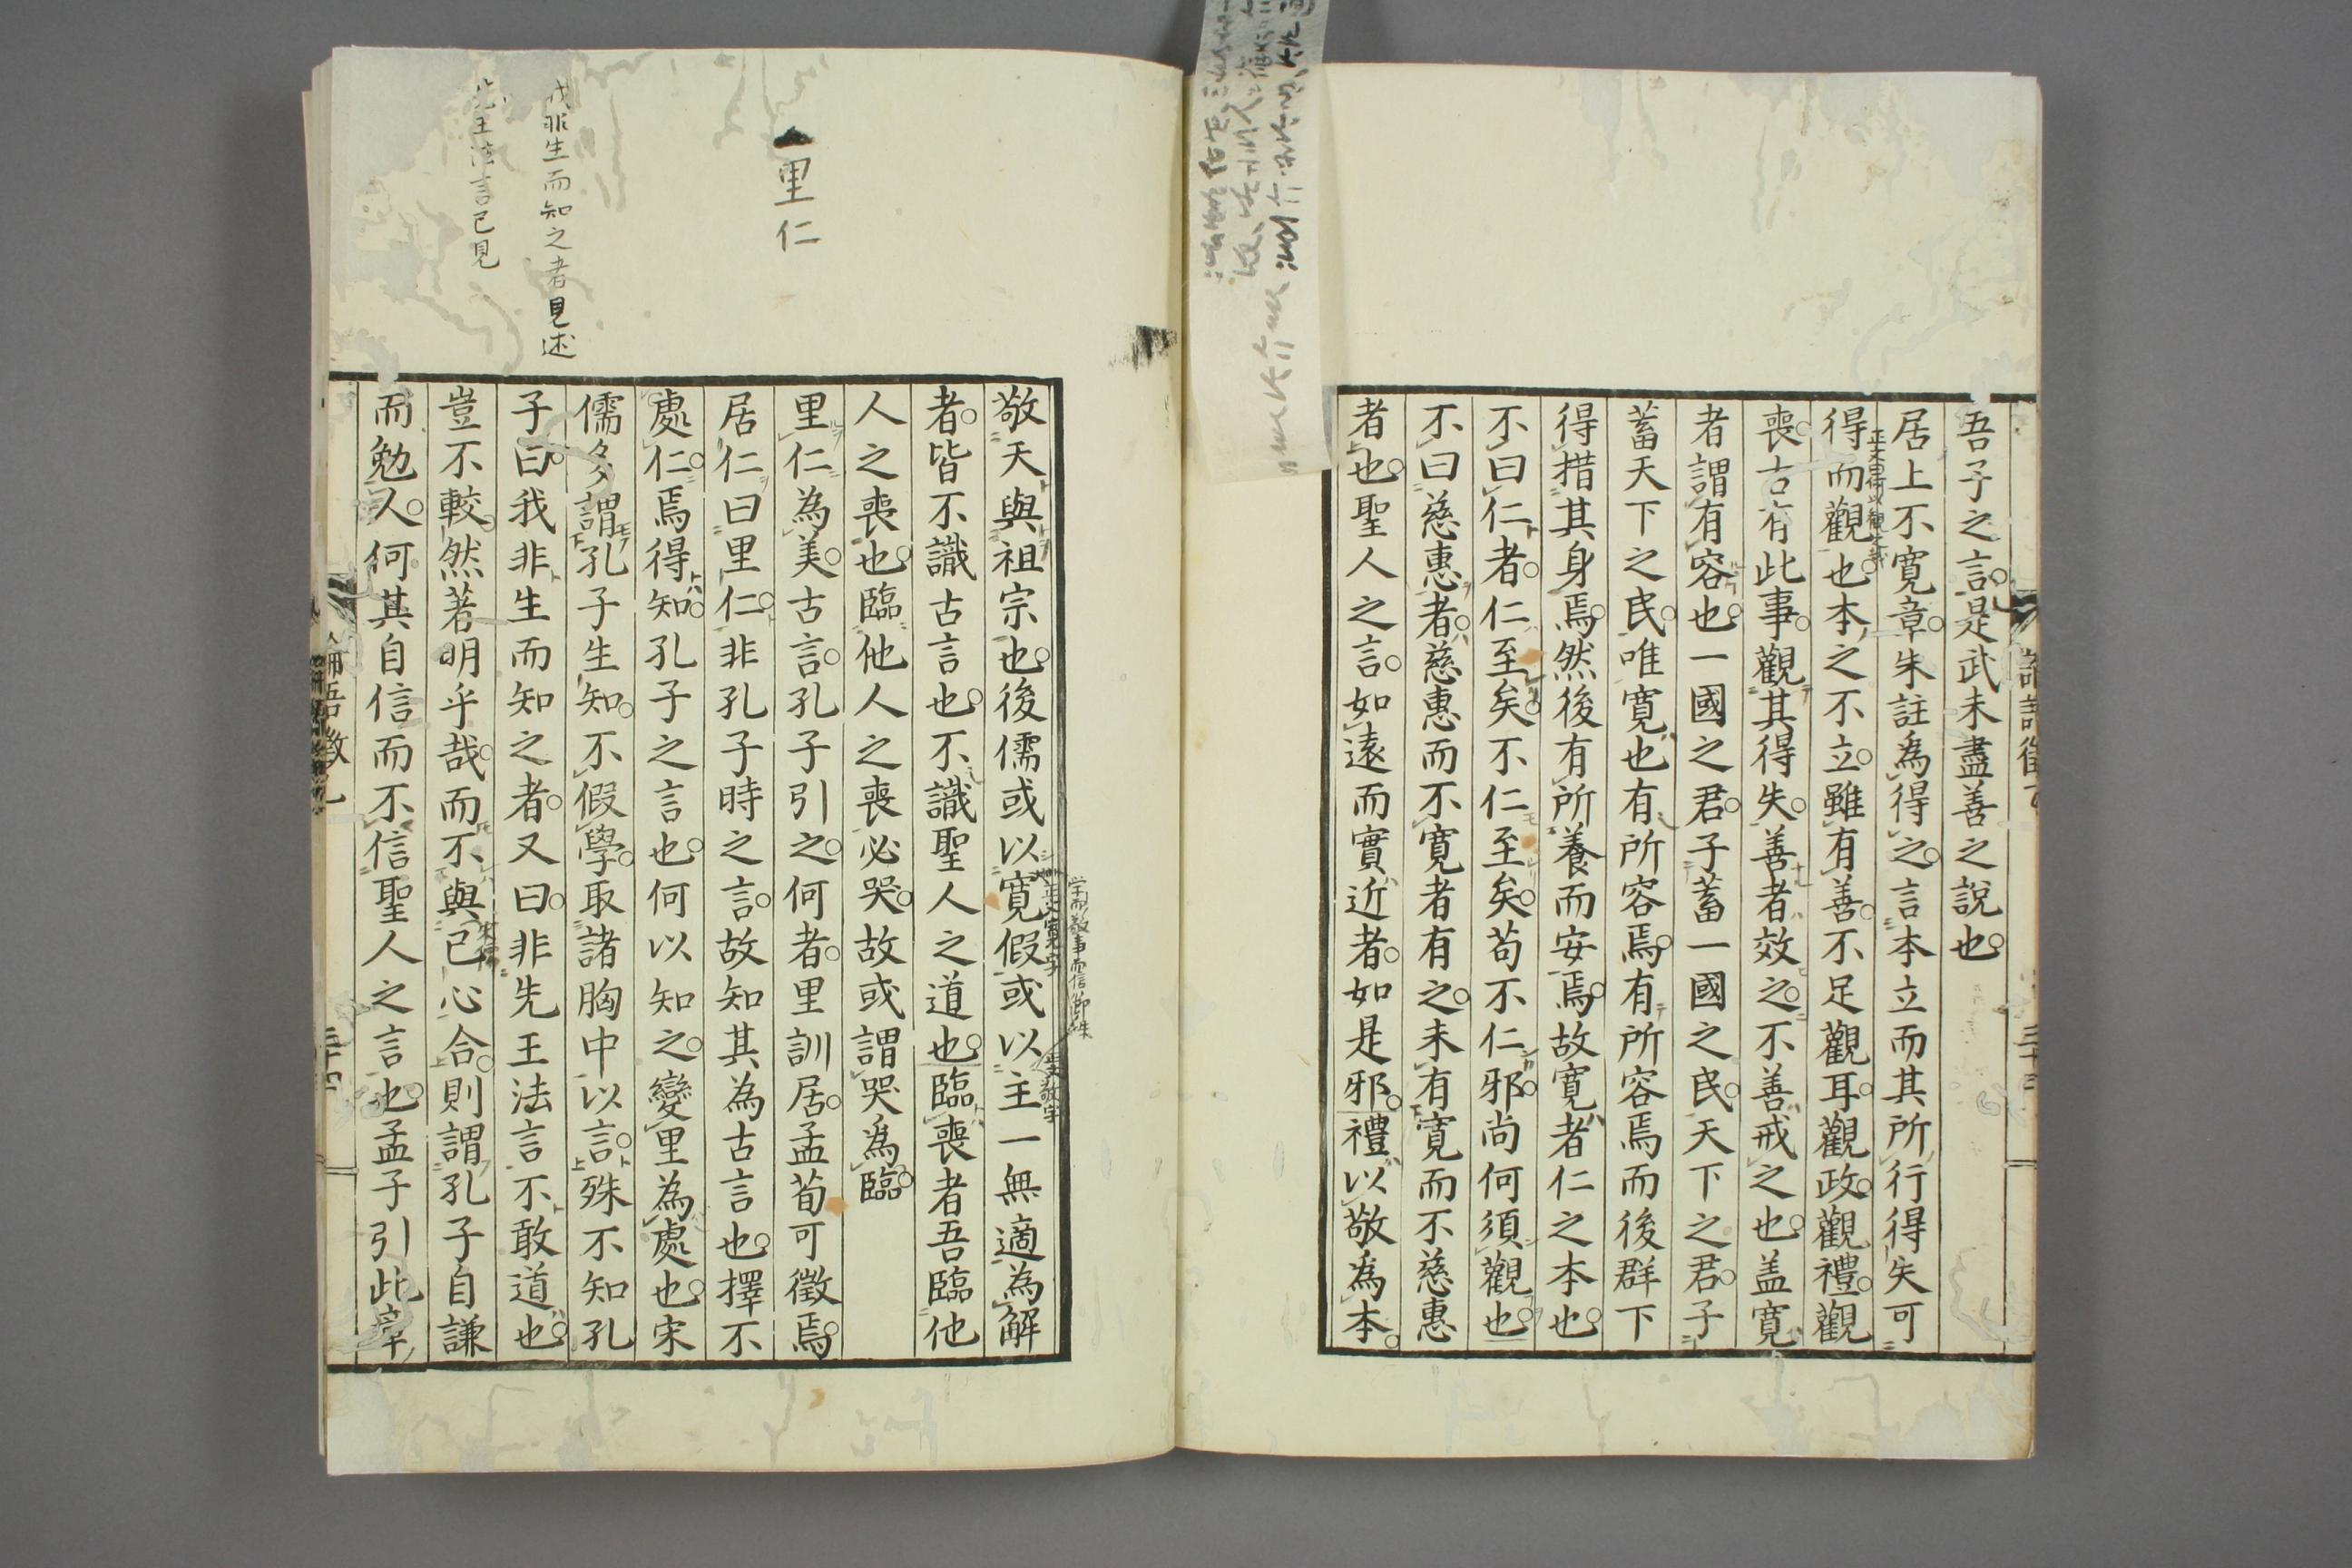 吾子之言是武未盡善之說也
居上不寬章朱註爲得之言本立而其所行得失可
得而觀也本之不立雖有善不足觀耳觀政觀禮觀
喪古有此事觀其得失善者效之不善戒之也盖寬
者謂有容也一國之君子蓄一國之民天下之君子
蓄天下之民唯寬也有所容焉有所容焉而後群下
得措其身焉然後有所養而安焉故寬者仁之本也
不曰仁者仁至矣不仁至矣苟不仁邪尚何須觀也
不曰慈惠者慈惠而不寬者有之未有寬而不慈惠
者也聖人之言如遠而實近者如是邪禮以敬爲本
敬天與祖宗也後儒或以寬假或以主一無適為解
者皆不識古言也不識聖人之道也臨喪者吾臨他
人之喪也臨他人之喪必哭故或謂哭爲臨
里仁
里仁為美古言孔子引之何者里訓居孟荀可徵焉
居仁曰里仁非孔子時之言故知其為古言也擇不
處仁焉得知孔子之言也何以知之變里為處也宋
儒多謂孔子生知不假學取諸胸中以言殊不知孔
我非生而知之者見述
子曰我非生而知之者又曰非先王法言不敢道也
王法言已見
豈不較然著明乎哉而不與己心合則謂孔子自謙
而勉人何其自信而不信聖人之言也孟子引此章